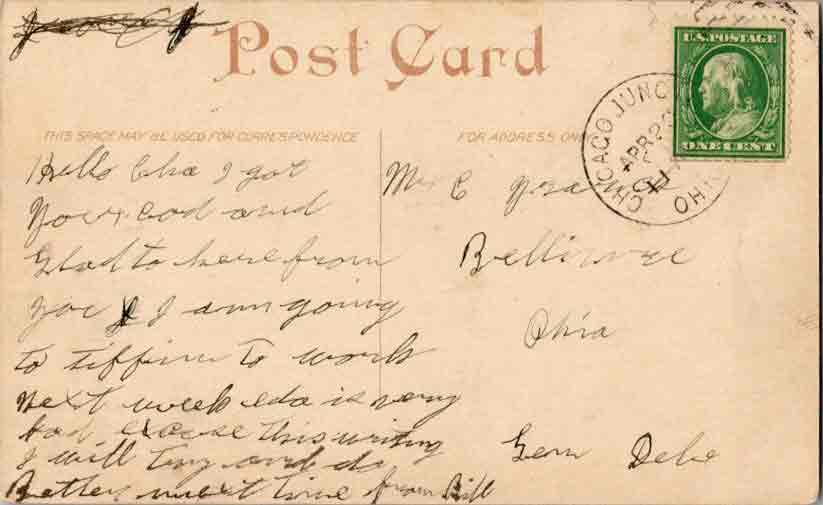 Post Card
U.S. POSTAGE
ONE CENT
CHICAGO JUNC OHIO
APR 2
THIS SPACE MAY BE USED FOR CORRESPONDENCE
FOR ADDRESS ON
Hello Cha I got
Your Cod and
Glad to here from
you I am going
to tiffin to work
Next week eda is very
bad excuse this writing
I will Try and do
Better next time from Bill
Mr C
Bellivree
Ohio
Gen Dele